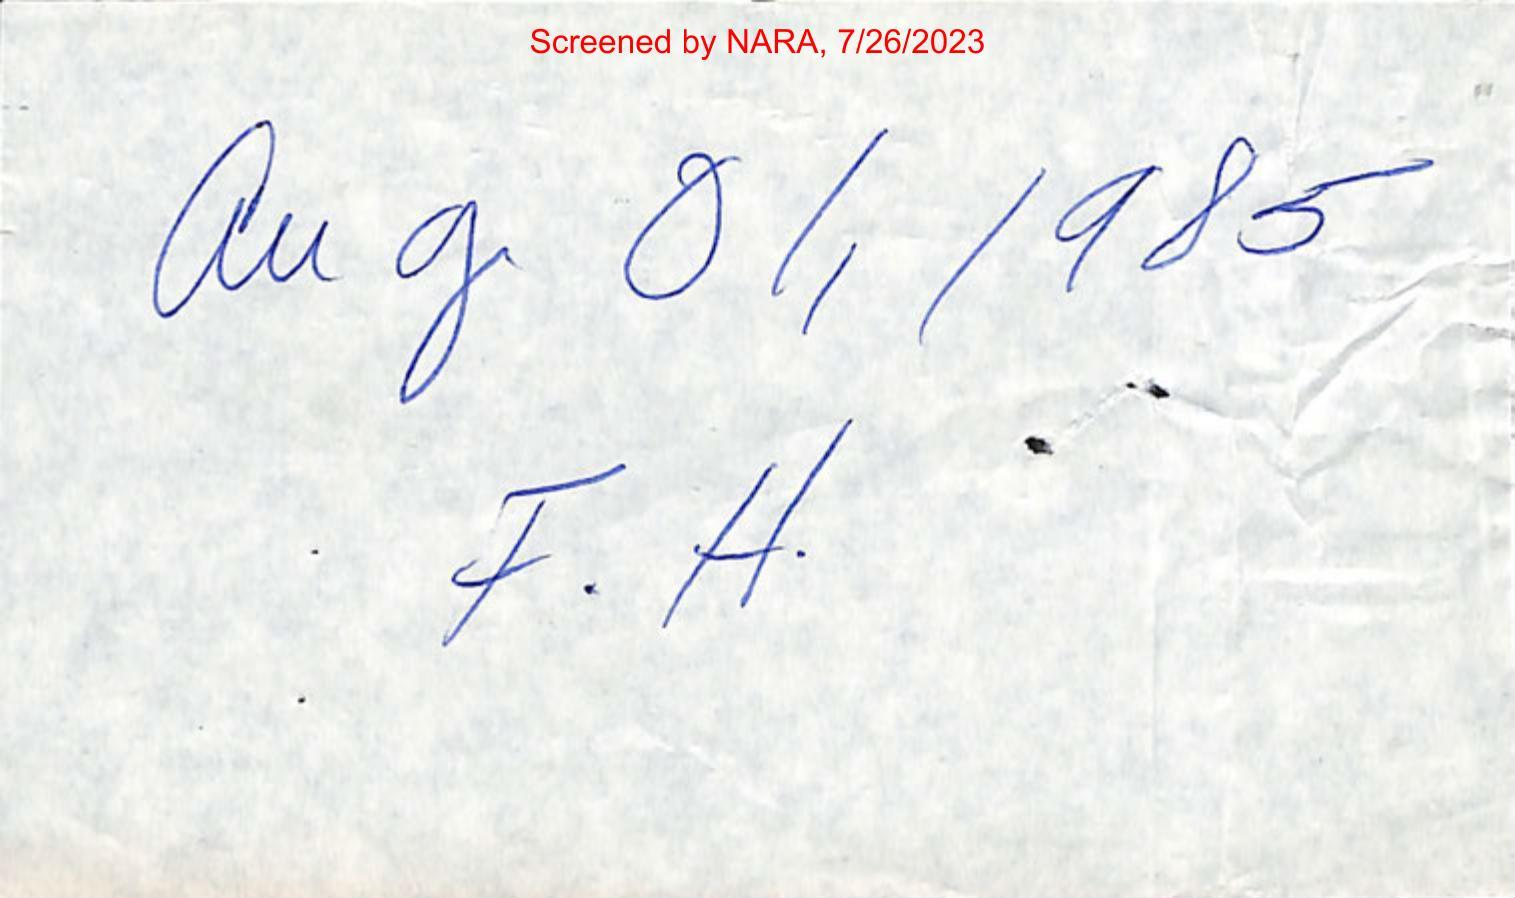 Screened by NARA, 7/26/2023
Aug 01, 1985
F. H.